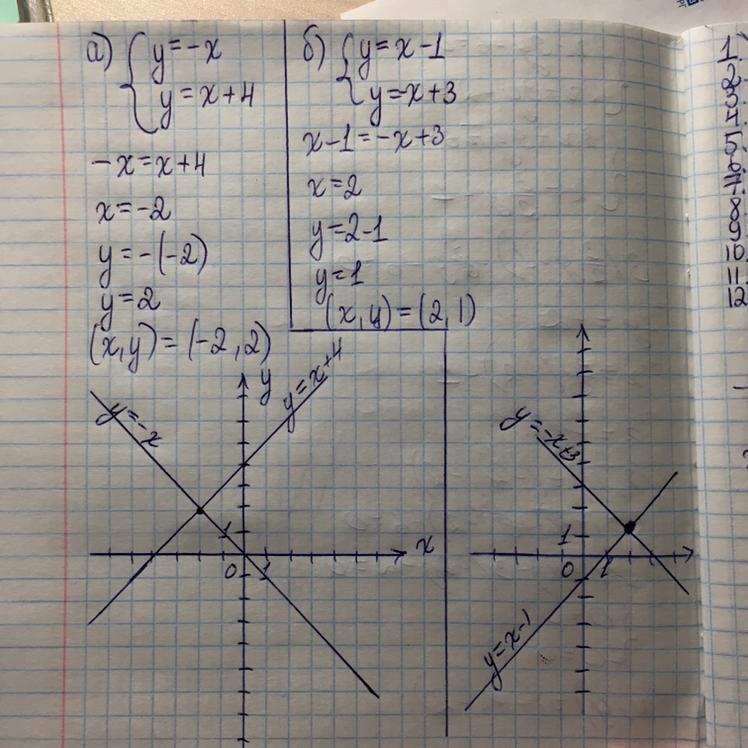 а) { y=-x
y=x+4
-x=x+4
x=-2
y=-(-2)
y=2
(x,y)=(-2,2)
б) { y=x-1
y=-x+3
x-1=-x+3
x=2
y=2-1
y=1
(x,y)=(2,1)
y
y=x+4
y=-x
1
x
0
1
y=-x+3
1
0
1
y=x-1
1.
2.
3.
4.
5.
6.
7.
8.
9.
10.
11.
12